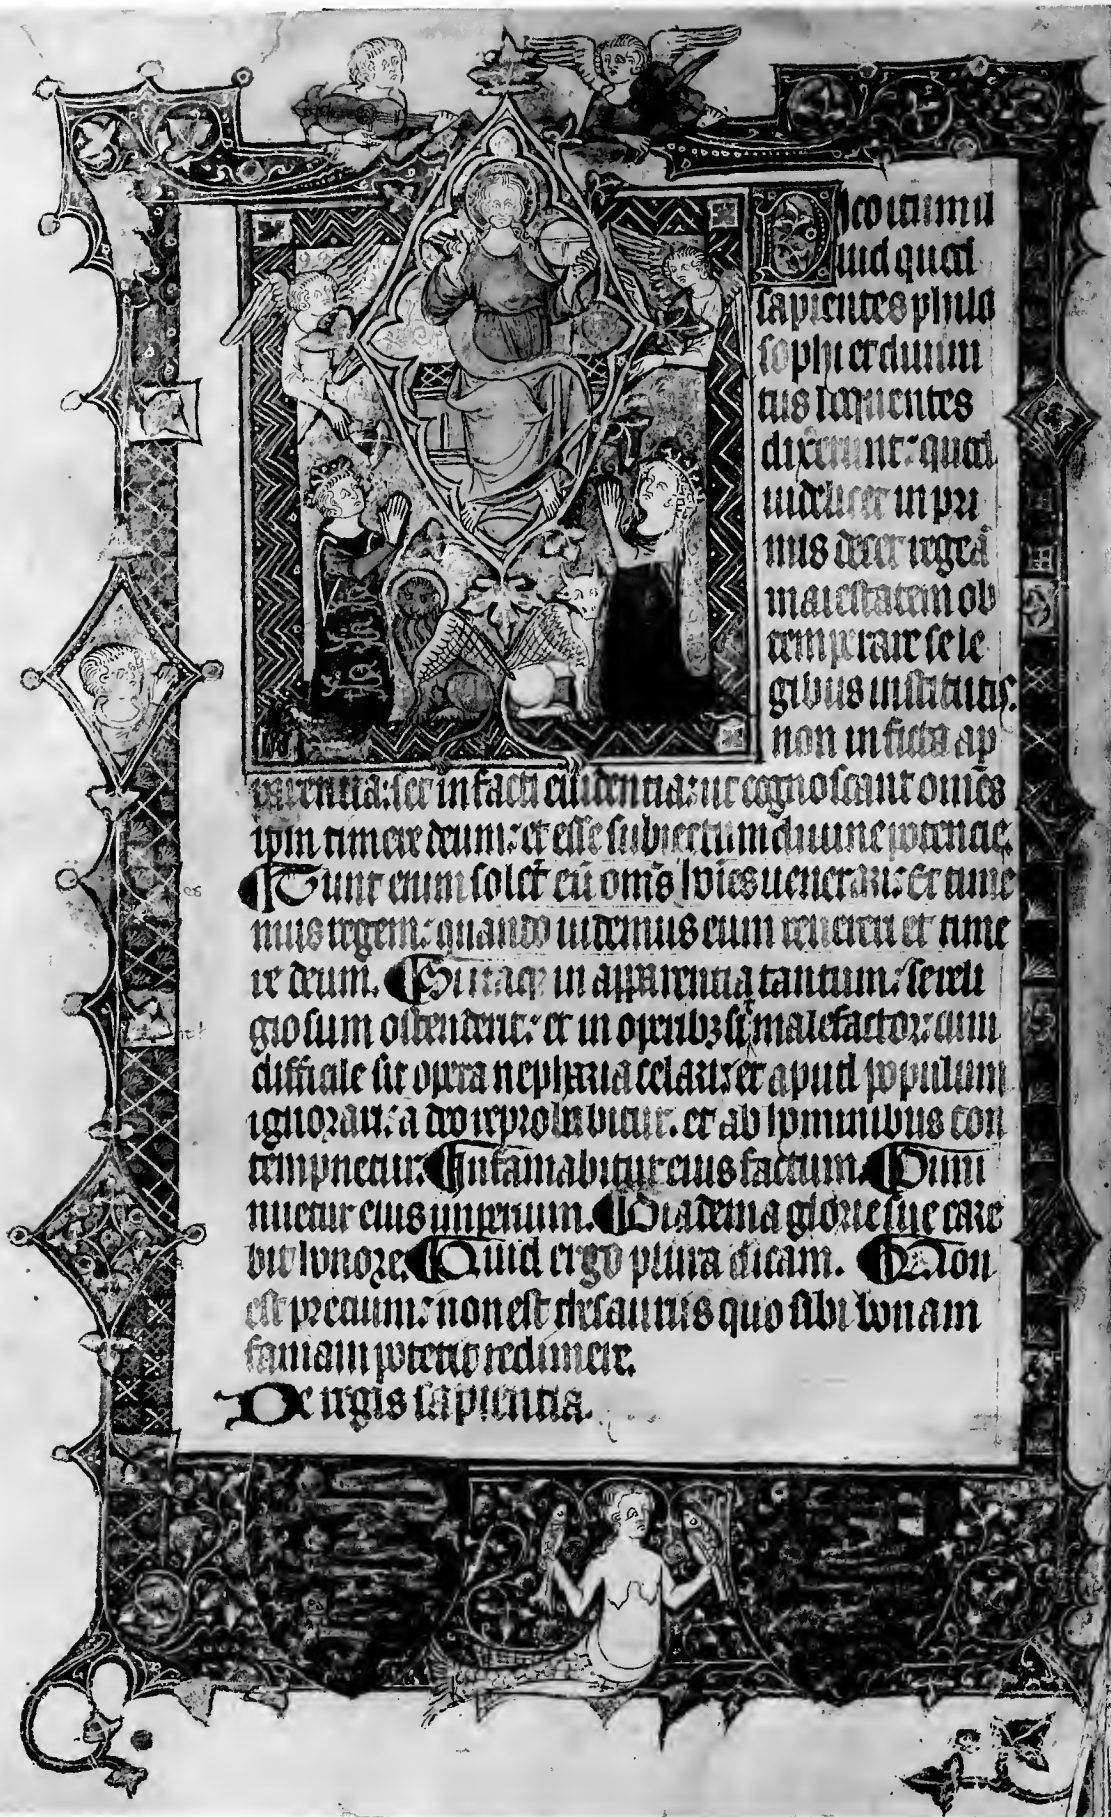 Dico itaq; illud quod
sapientes philo
sophi et diuini
tus loquentes
dixerunt: quod
uidelicet in pri
mis decet regeā
maiestatem ob
temperare se le
gibus institutis.
non in ficta ap
parentia: set in facti euidentia: ut cognoscant om̄es
ip̄m timere deum: et esse subiectum diuine potencie.
¶ Sunt enim solet eū om̄s hōies uenerari: Et time
mus regem: quando uidemus eum reuereri et time
re deum. ¶ Si itaq; in apparentia tantum: se reli
giosum ostenderit: et in operibꝫ sit malefactor: cum
difficile sit opera nepharia celari: et apud populum
ignorari: a deo reprobabitur. et ab hominibus con
tempnetur. ¶ Infamabitur eius factum. ¶ Dimi
nuetur eius imperium. ¶ Diadema glorie sue care
bit honore. ¶ Quid ergo plura dicam. ¶ Non
est precium: non est thesaurus quo sibi bonam
famam poterit redimere.
De regis sapientia.